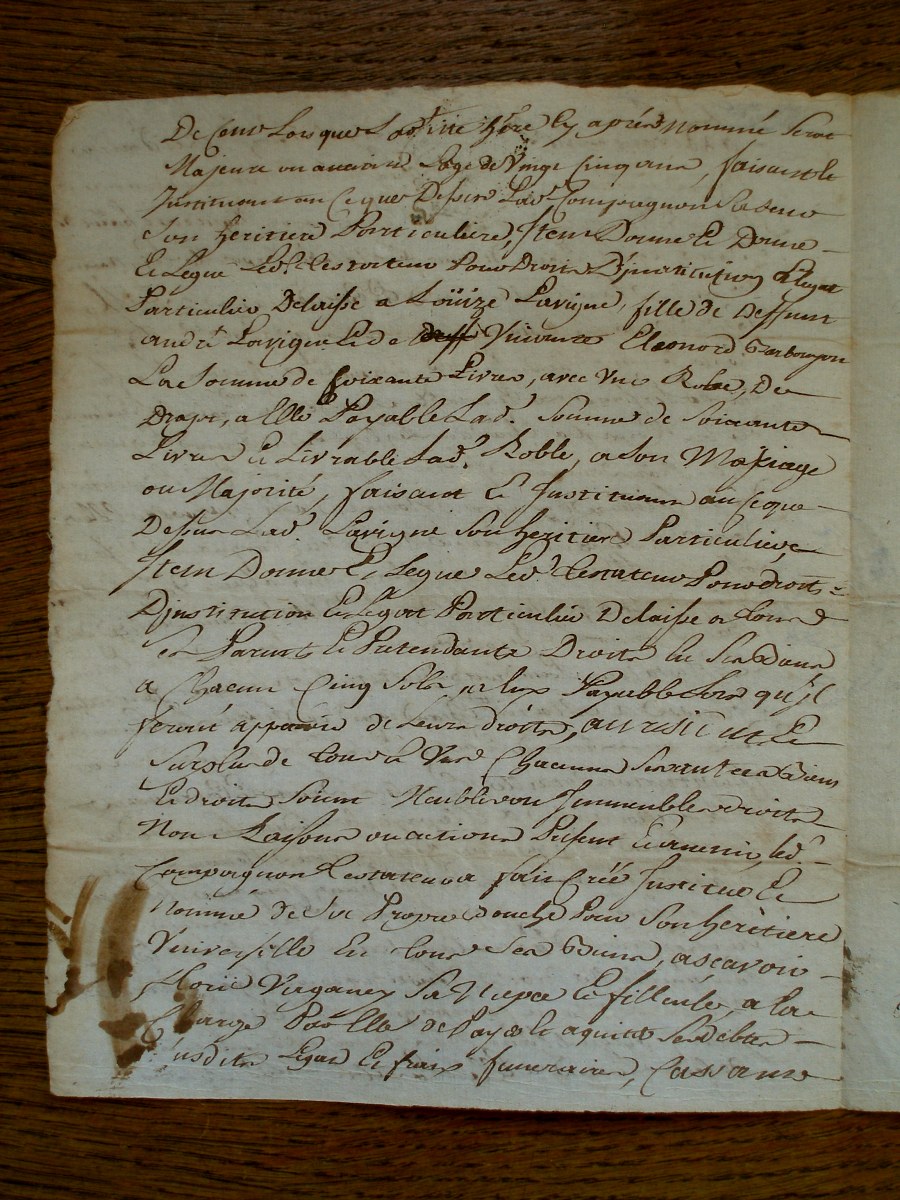 De Cour Lorsque Lad. ditte Here Cy aprés Nommé Sera
Majeure ou aura L'age de Vingt Cinq ans, faisant Et
Instituant au Ceque Dessus Lad. Compagnon
Son heritiere Particuliere, Item Donne Et Donne
Et Legue Led. testateur Pour Droits D'jnstitution Et Legat
Particulier Delaisse a Loüize Lavigne, fille de Deffunt
andré Lavigne Et de Vivante Eleonord
La Somme de soixante Livres, avec Une Robe, De
Drapt, a Elle Payable Lad. Somme de Soixante
Livres Et Livrable Lad. Robbe, a Son Mariage
ou Majorité, faisant Et Instituant au Ceque
Dessus Lad. Lavigne Son heritiere Particuliere,
Item Donne Et Legue Led. testateur Pour Droits
Djnstitution Et Legat Particulier Delaisse a tous
Ses Parents Et Pretendants Droits En Ses Biens
a Chacun Cinq Sols, a Eux Payable Lors qu'il
feront apparoir de Leurs droits, au residut Et
Surplus de tous Et Uns Chacuns Ses autres Biens
Et droits Soient Meubles ou Immeubles droits
Nom Raisons ou actions Present Et avenir, Led.
Compagnon testateur a fait Créé Institué Et
Nommé de Sa Propre Bouche Pour Son heritiere
Universelle En tous Ses Biens, ascavoir
Marie Sa Niepce Et filleule, a La
Charge Par Elle de Payer Et aquiter Ses debtes
Susdits Legats Et frais funeraires, Cassant